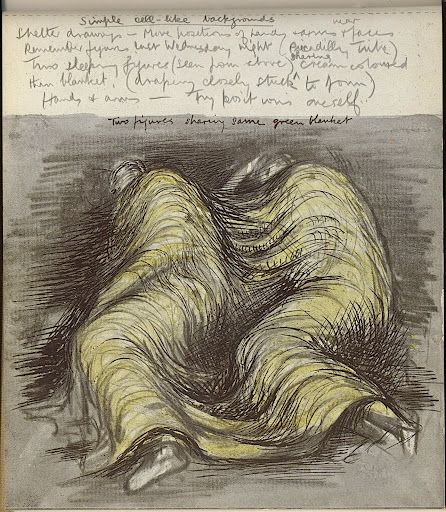 Simple cell-like backgrounds
Shelter drawings — More positions of hands & arms near faces
Remember figures last Wednesday night (Piccadilly Tube)
Two sleeping figures (seen from above) sharing cream coloured
thin blanket. (draping closely stuck to form)
Hands & arms — Try positions oneself.
Two figures sharing same green blanket